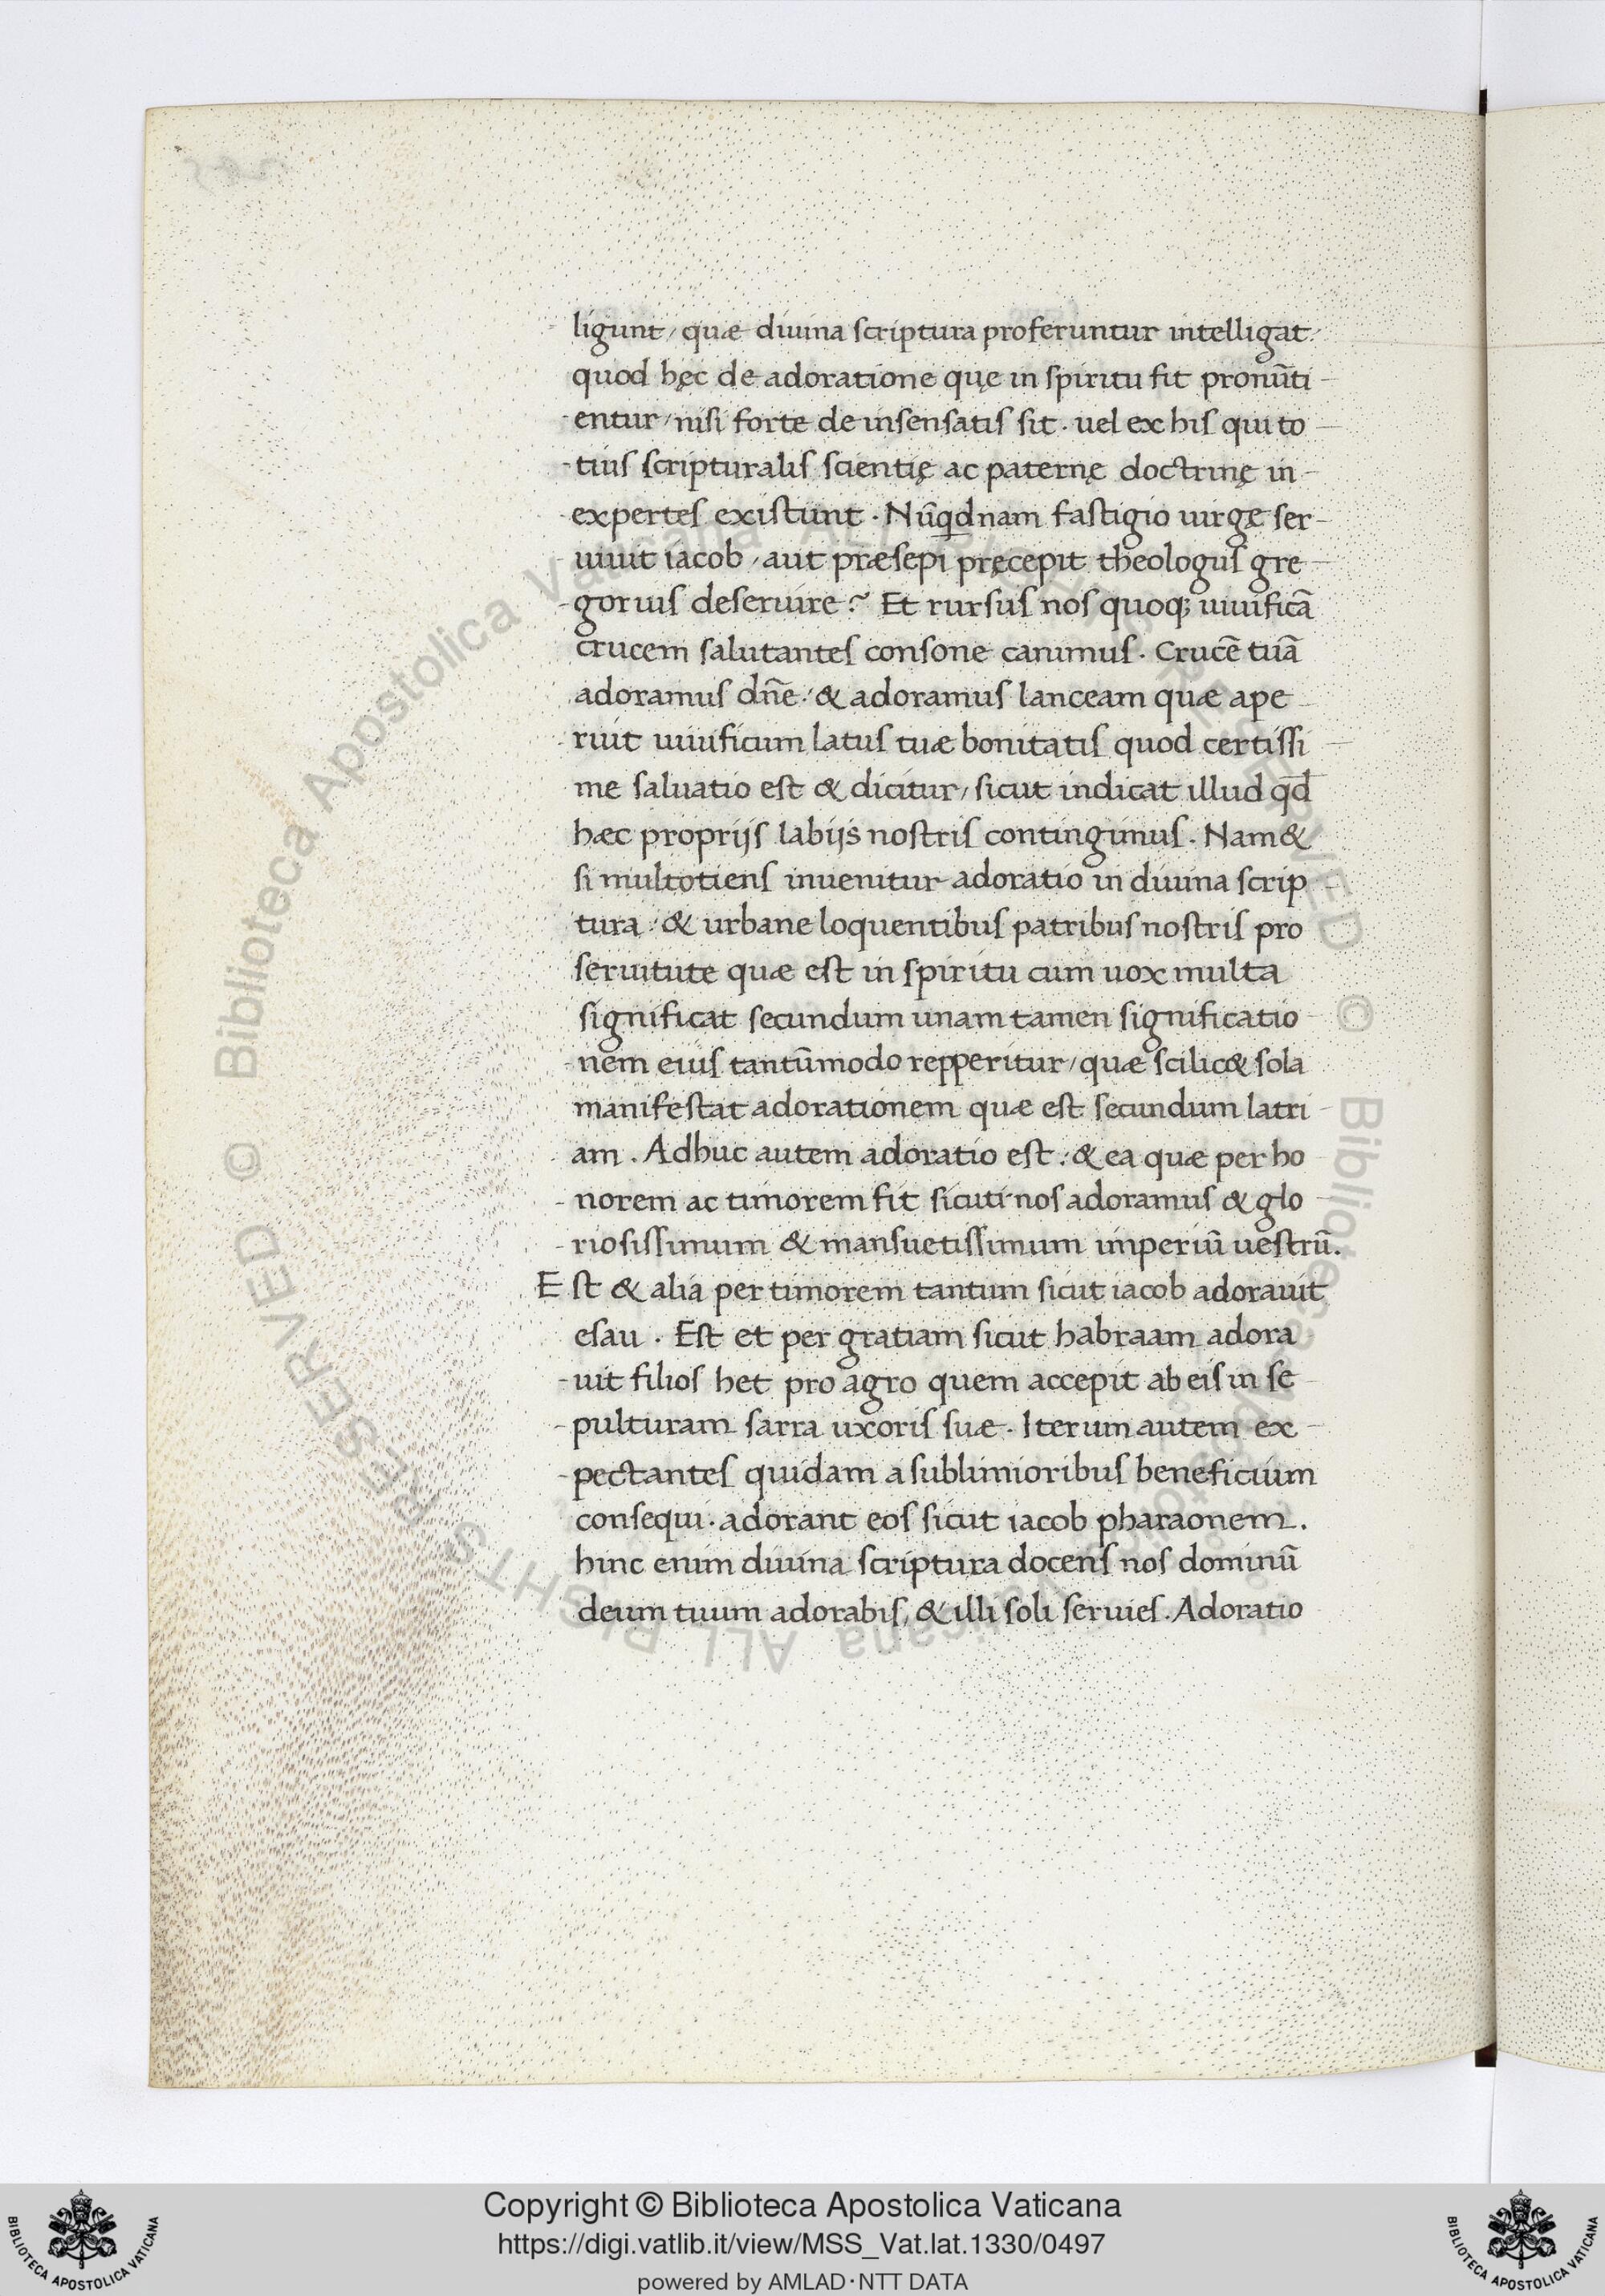 ligunt / quæ diuina scriptura proferuntur intelligat
quod hęc de adoratione quę in spiritu fit pronũti
entur / nisi forte de insensatis sit . uel ex his qui to
tius scripturalis scientię ac paternę doctrinę in
expertes existunt . Nũqd nam fastigio uirgę ser
uiuit iacob / aut præsepi pręcepit theologus gre
gorius deseruire ? Et rursus nos quoq; uiuificã
crucem salutantes consone canimus . Crucẽ tuã
adoramus dñe / & adoramus lanceam quæ ape
ruit uiuificum latus tuæ bonitatis quod certissi
me saluatio est & dicitur / sicut indicat illud qd̄
hæc proprijs labijs nostris contingimus . Nam &
si multotiens inuenitur adoratio in diuina scrip
tura / & urbane loquentibus patribus nostris pro
seruitute quæ est in spiritu cum uox multa
significat secundum unam tamen significatio
nem eius tantũmodo repperitur / quæ scilic& sola
manifestat adorationem quæ est secundum latri
am . Adhuc autem adoratio est : & ea quæ per ho
norem ac timorem fit sicuti nos adoramus & glo
riosissimum & mansuetissimum imperiũ uestrũ .
Est & alia per timorem tantum sicut iacob adorauit
esau . Est et per gratiam sicut habraam adora
uit filios het pro agro quem accepit ab eis in se
pulturam sarra uxoris suæ . Iterum autem ex
pectantes quidam a sublimioribus beneficium
consequi . adorant eos sicut iacob pharaonem .
hinc enim diuina scriptura docens nos dominũ
deum tuum adorabis , & illi soli seruies . Adoratio
© Biblioteca Apostolica Vaticana ALL RIGHTS RESERVED
© Biblioteca Apostolica Vaticana ALL RIGHTS RESERVED
Copyright © Biblioteca Apostolica Vaticana
https://digi.vatlib.it/view/MSS_Vat.lat.1330/0497
powered by AMLAD·NTT DATA
BIBLIOTECA APOSTOLICA VATICANA
BIBLIOTECA APOSTOLICA VATICANA